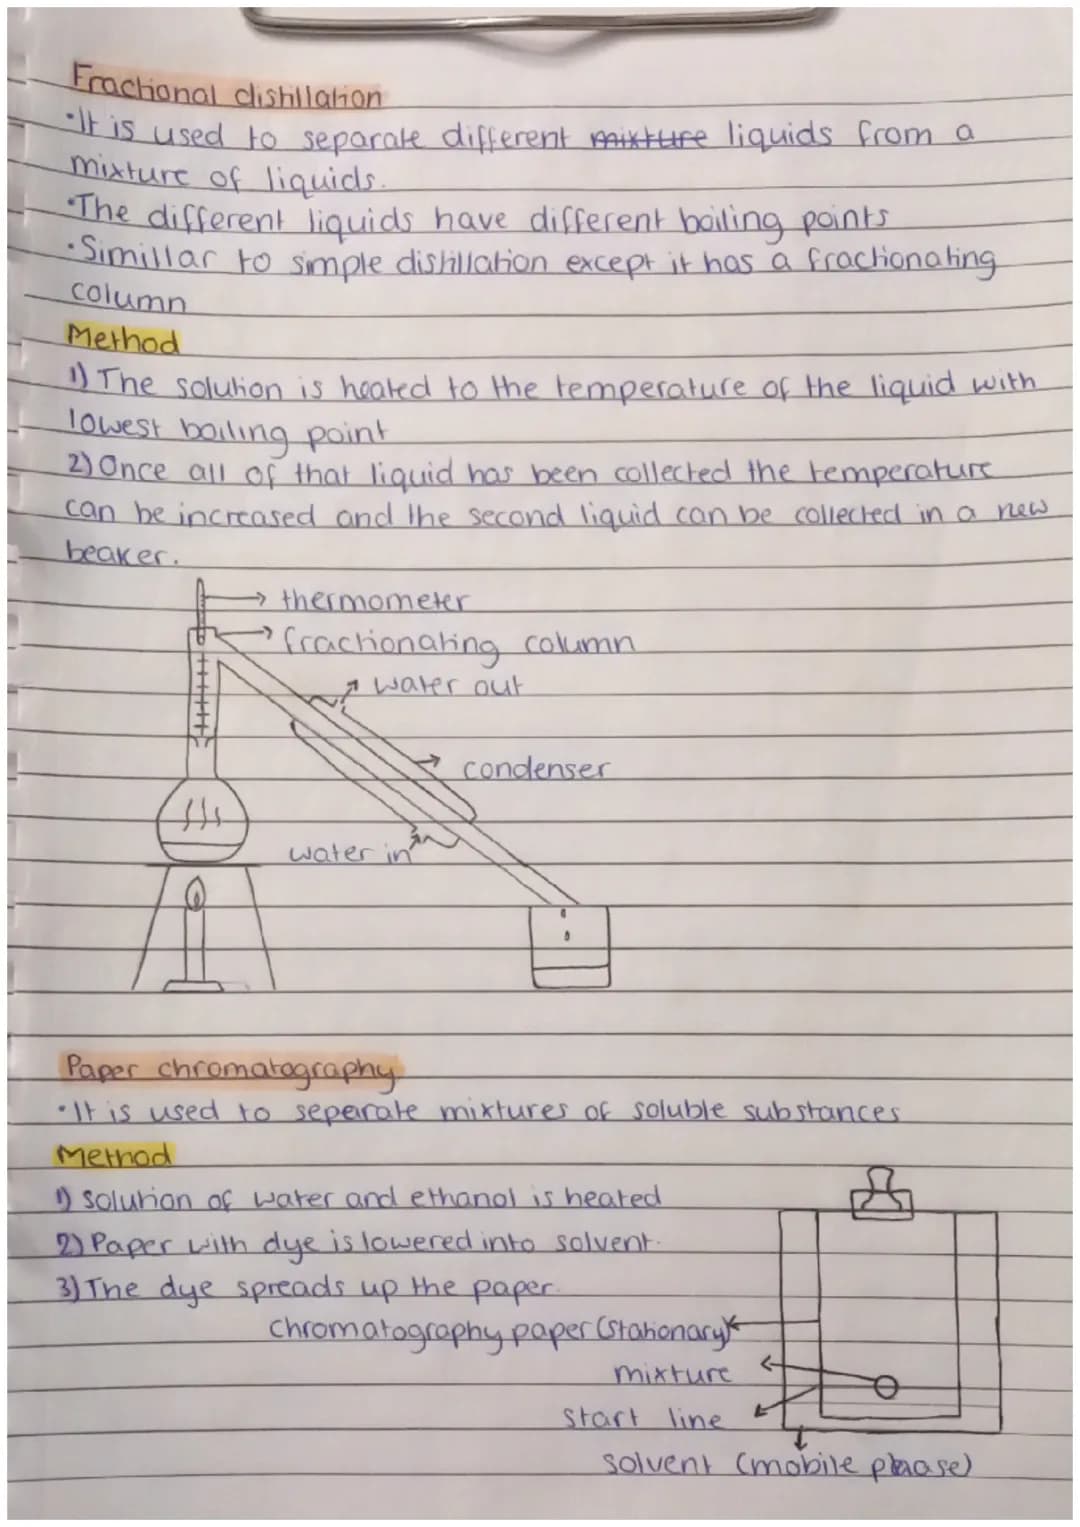 Fractional distillation
•It is used to separate different mixture liquids from a
mixture of liquids.
•The different liquids have different boiling points
•Simillar to simple distillation except it has a fractionating
column
Method
1) The solution is heated to the temperature of the liquid with
lowest boiling point
2) Once all of that liquid has been collected the temperature
can be increased and the second liquid can be collected in a new
beaker.
thermometer
fractionating column
water out
condenser
water in
Paper chromatography
•It is used to seperate mixtures of soluble substances
Method
1) solution of water and ethanol is heated
2) Paper with dye is lowered into solvent.
3) The dye spreads up the paper.
chromatography paper (stationary)
mixture
start line
solvent (mobile phase)